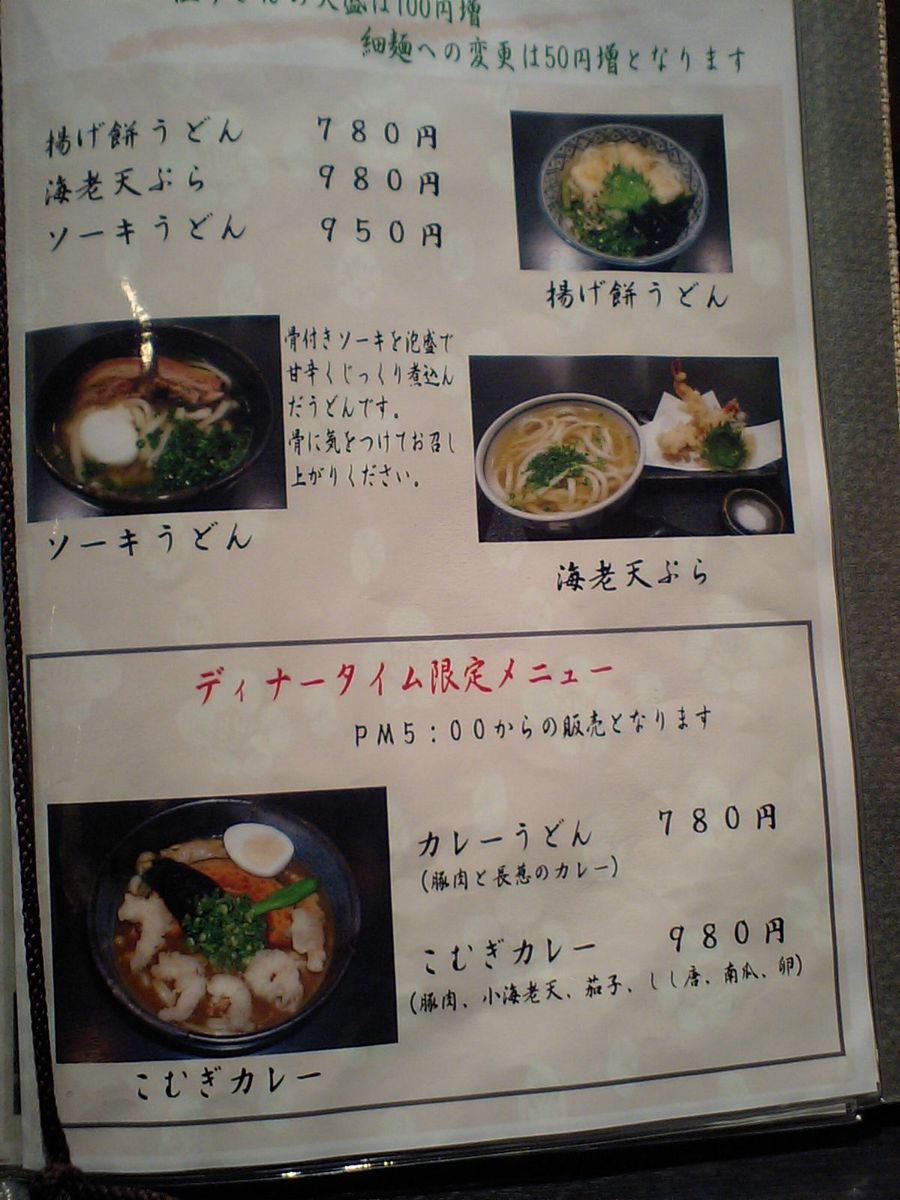 の大盛は100円増
細麺への変更は50円増となります
揚げ餅うどん 780円
海老天ぷら 980円
ソーキうどん 950円
揚げ餅うどん
骨付きソーキを泡盛で
甘辛くじっくり煮込ん
だうどんです。
骨に気をつけてお召し
上がりください。
ソーキうどん
海老天ぷら
ディナータイム限定メニュー
PM5:00からの販売となります
カレーうどん 780円
(豚肉と長葱のカレー)
こむぎカレー 980円
(豚肉、小海老天、茄子、しし唐、南瓜、卵)
こむぎカレー